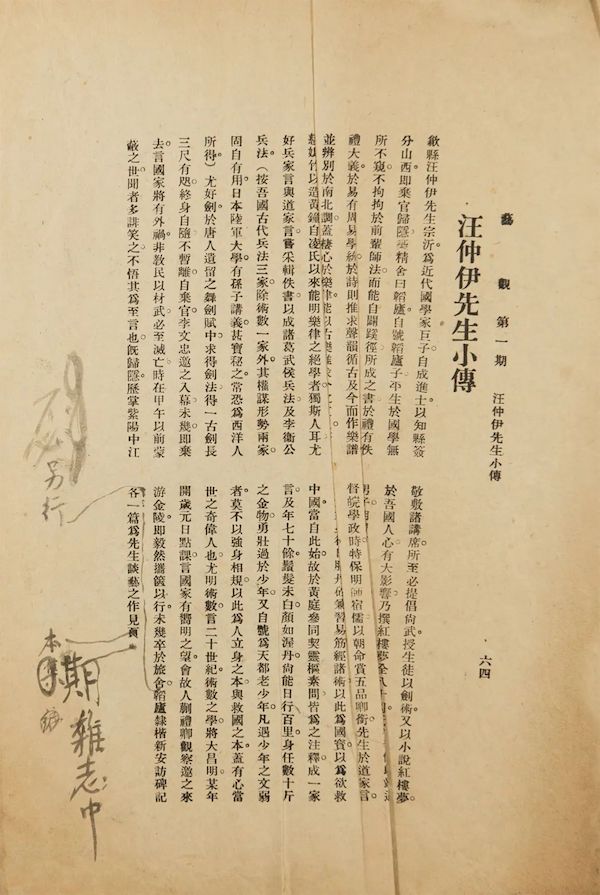 藝觀第一期　汪仲伊先生小傳
六四
汪仲伊先生小傳
歙縣汪仲伊先生宗沂。為近代國學家巨子。自成進士。以知縣簽
分山西。即棄官歸隱。築精舍曰韜廬。自號韜廬子。平生於國學無
所不窺。不拘拘於前輩師法。而能自闢蹊徑。所成之書。於禮有佚
禮大義。於易有周易學統。於詩則推求聲韻。循古及今。而作樂譜
並辨別於南北調。蓋棲心於樂律。能以古樂
竹以造黃鐘。自凌氏以來。能明樂律之絕學者。獨斯人耳。尤
好兵家言與道家言。嘗采輯佚書。以成諸葛武侯兵法及李衞公
兵法。（按吾國古代兵法三家。除術數一家外。其權謀形勢兩家。
固自有用。日本陸軍大學。有孫子講義。甚寶秘之。常恐為西洋人
所得）尤好劍。於唐人遺留之舞劍賦中。求得劍法。得一古劍。長
三尺有咫。終身自隨不暫離。自棄官。李文忠邀之入幕。未幾即棄
去。言國家將有外禍。非教民以材武。必至滅亡。時在甲午以前。蒙
蔽之世。聞者多誹笑之。不悟其為至言也。旣歸隱。歷掌紫陽中江
敬敷諸講席。所至必提倡尚武。授生徒以劍術。又以小說紅樓夢。
於吾國人心有大影響。乃撰紅樓夢
督皖學政時。特保明師宿儒。以朝命賞五品卿銜。先生於道家言
習易筋經諸術。以此為國寶。以為欲救
中國。當自此始。故於黃庭參同契靈樞素問。皆為之注釋。成一家
言。及年七十餘。鬚髮未白。顏如渥丹。尚能日行百里。身任數十斤
之金物。勇壯過於少年。又自號為天都老少年。凡遇少年之文弱
者。莫不以強身相規。以此為人立身之本。與救國之本。蓋有心當
世之奇偉人也。尤明術數。言二十世紀術數之學。將大昌明。某年
開歲元日點課。言國家有嚮明之望。會故人蒯禮卿觀察邀之來
游金陵。即毅然攜篋以行。未幾卒於旅舍。韜廬隸楷新安訪碑記
各一篇。為先生談藝之作。見
另行
本期雜志中